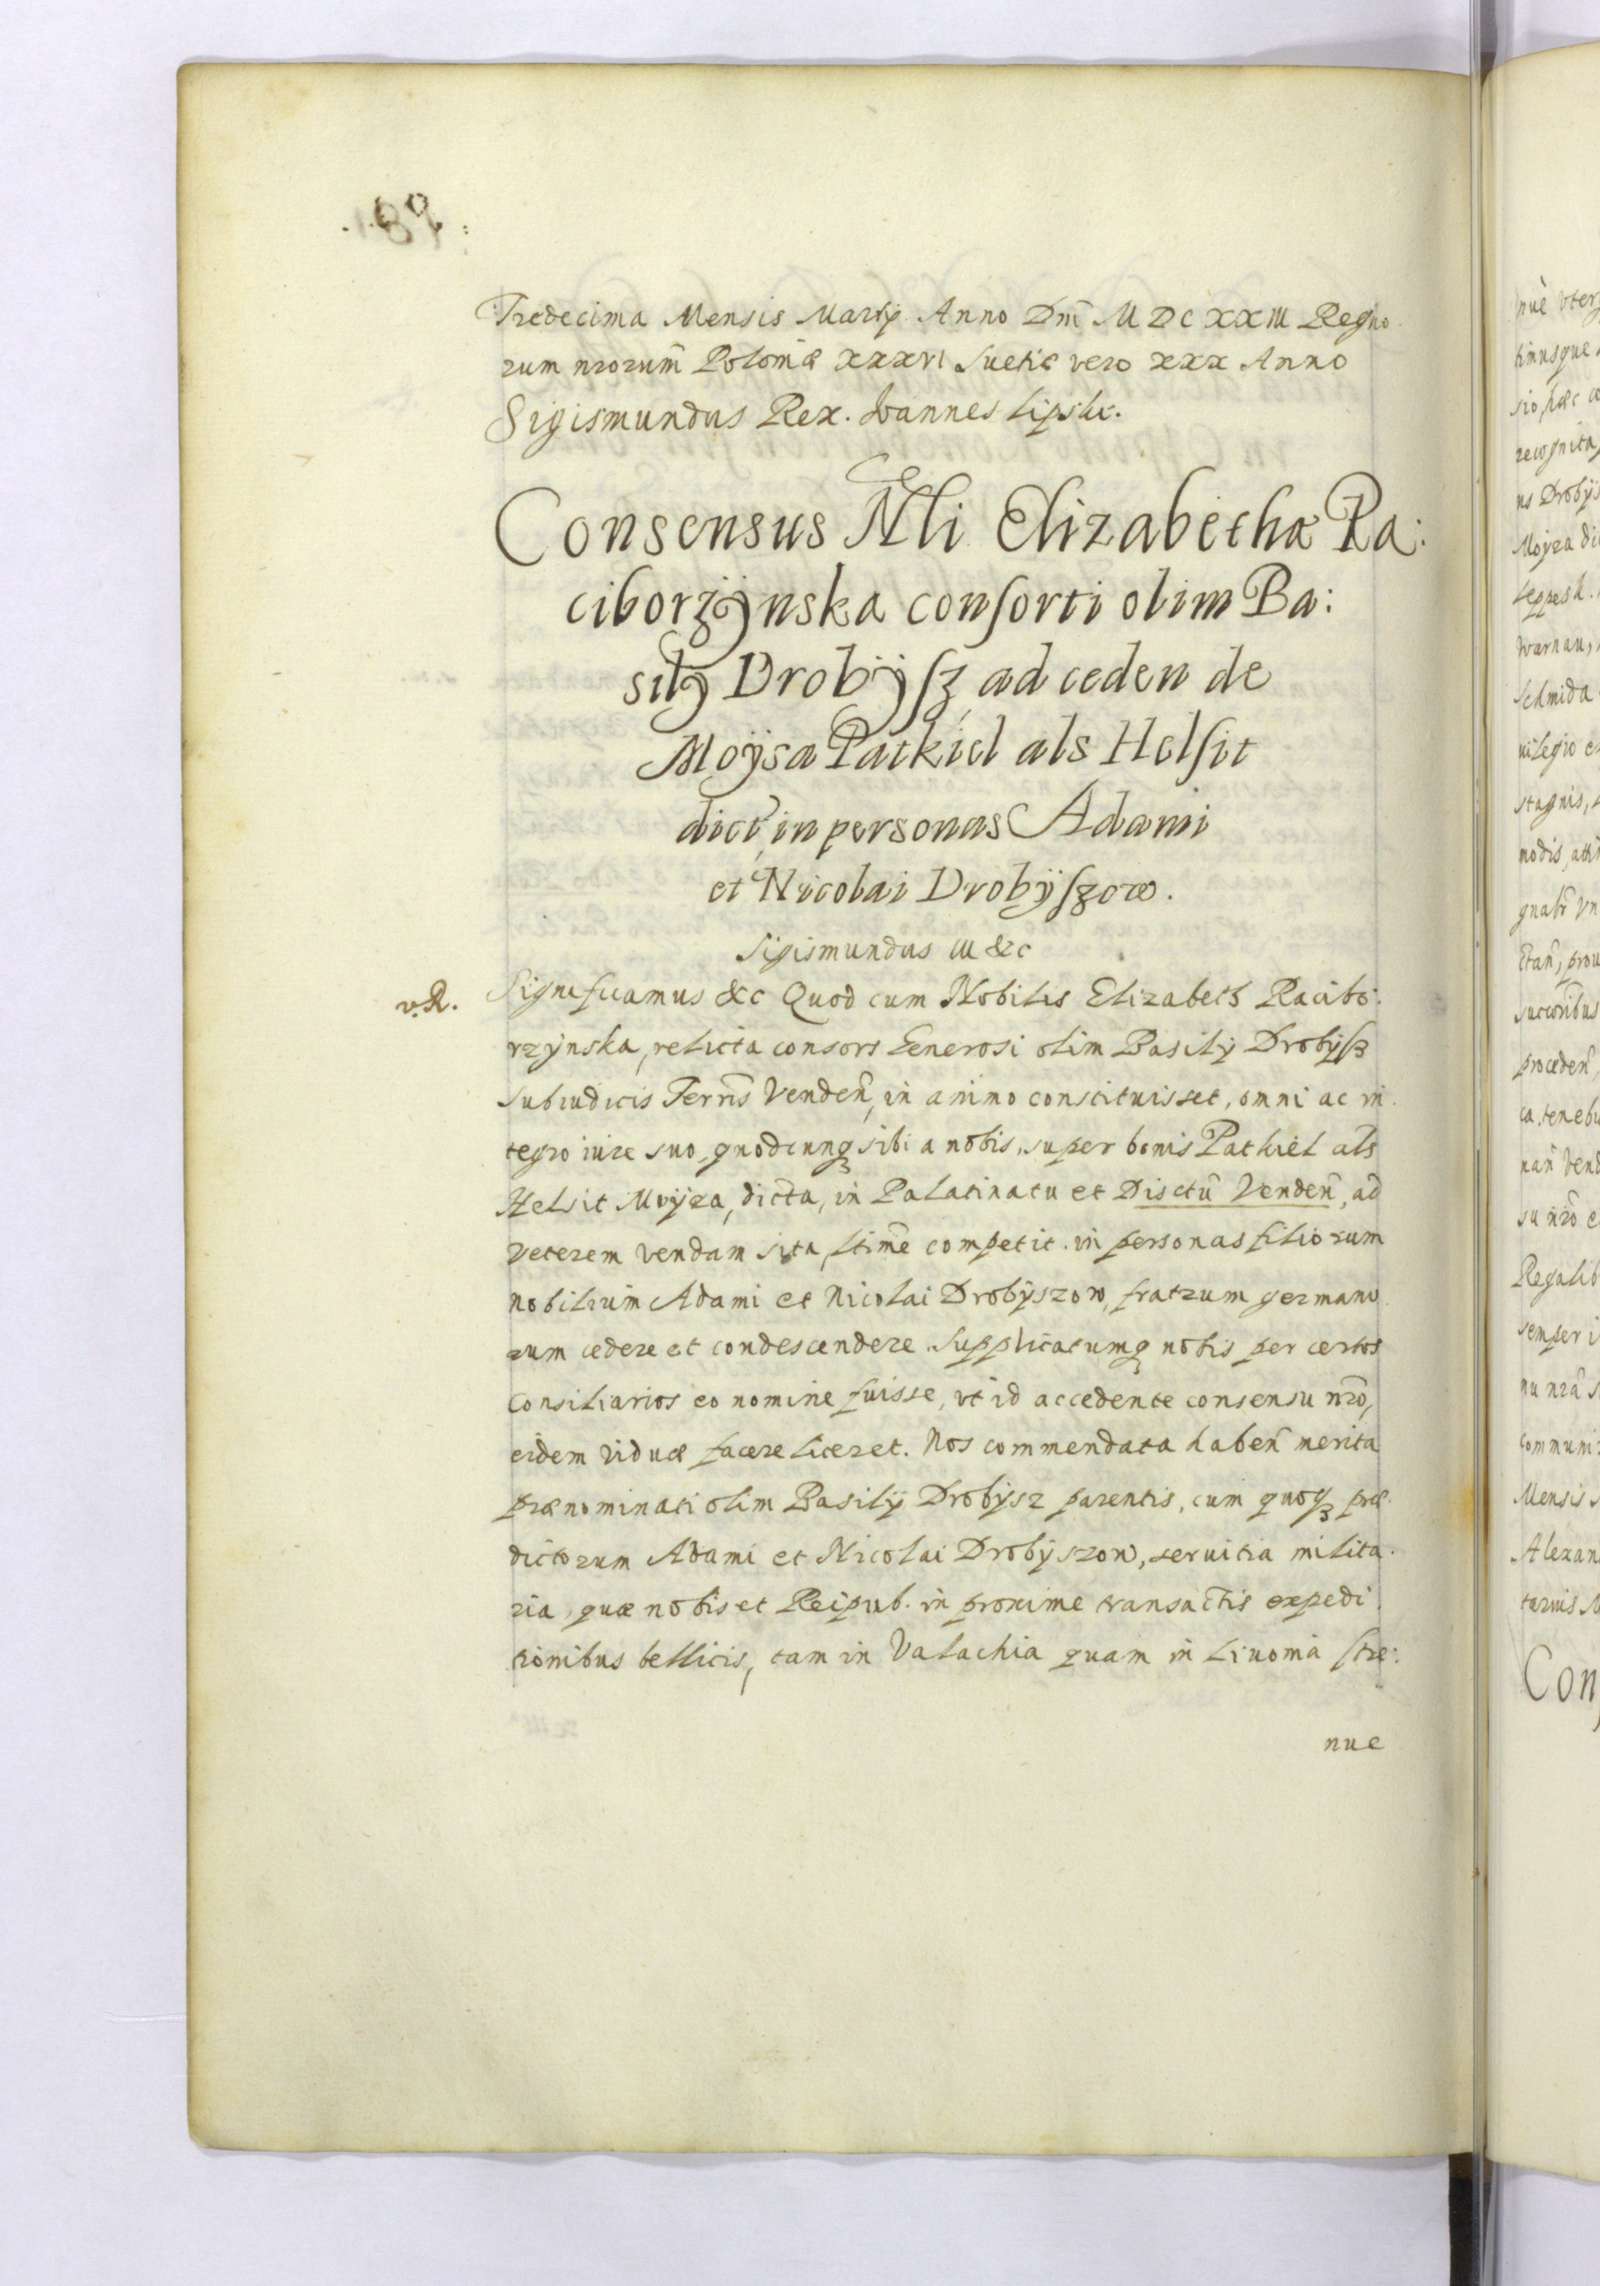 Tredecima Mensis Martij Anno Dni MDCXXIII Regno
rum nrorum Poloniæ XXXVI Suetiæ vero XXX Anno
Sigismundus Rex. Joannes Lipski.
Consensus Nbli Elizabethæ Ra:
ciborzÿnska consorti olim Ba:
silÿ Drobÿsz ad ceden de
Moÿsa Patkiel als Helsit
dict, in personas Adami
et Nicolai Drobÿszow.
Sigismundus III &c
v.R.
Significamus &c Quod cum Nobilis Elizabeth Racibo:
rzÿnska, relicta consors Generosi olim Basilÿ Drobÿsz
Subiudicis Terris Venden, in animo constituisset, omni ac in
tegro iure suo, quodcunq sibi a nobis, super bonis Patkiel als
Helsit Moÿza, dicta, in Palatinatu et Disctu Venden, ad
veterem vendam sita, ltime competit. in personas filiorum
Nobilium Adami et Nicolai Drobÿszow, fratrum germano
rum cedere et condescendere. Supplicatumq nobis per certos
Consiliarios eo nomine fuisse, vt id accedente consensu nro,
eidem viduæ facere liceret. Nos commendata haben merita
prænominati olim Basilÿ Drobÿsz parentis, cum quoq præ
dictorum Adami et Nicolai Drobÿszow, seruitia milita
ria, quæ nobis et Reipub. in proxime transactis expedi
tionibus bellicis, tam in Valachia quam in Liuonia stre:
nue